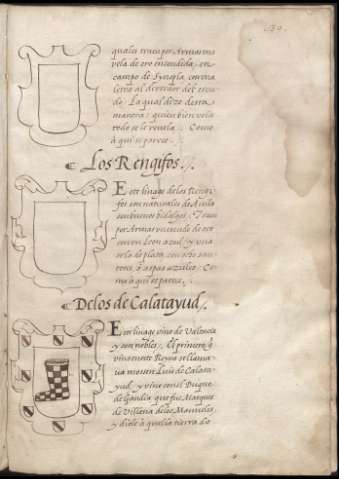 quales traen por Armas una
vela de oro encendida, en
campo de Synopla, con una
letra al derredor del escu-
do. La qual dize desta
manera: quien bien vela
todo se le revela. Como
a qui se parece.
Los Rengifos.
Este linage delos Rengi-
fos son naturales de Avila
son buenos hidalgos. Traen
por Armas un escudo de oro
con un Leon azul, y una
orla de plata con ocho
a spas azules. Co-
mo a qui se parece.
Delos de Calatayud.
Este linage vino de Valencia
y son nobles. El primero q̃
vino a este Reyno se llama-
va mossen Luis de Calata-
yud, y vino con el Duque
de Gandia que fue Marques
de Villena delos Manueles,
y diole a quella tierra do